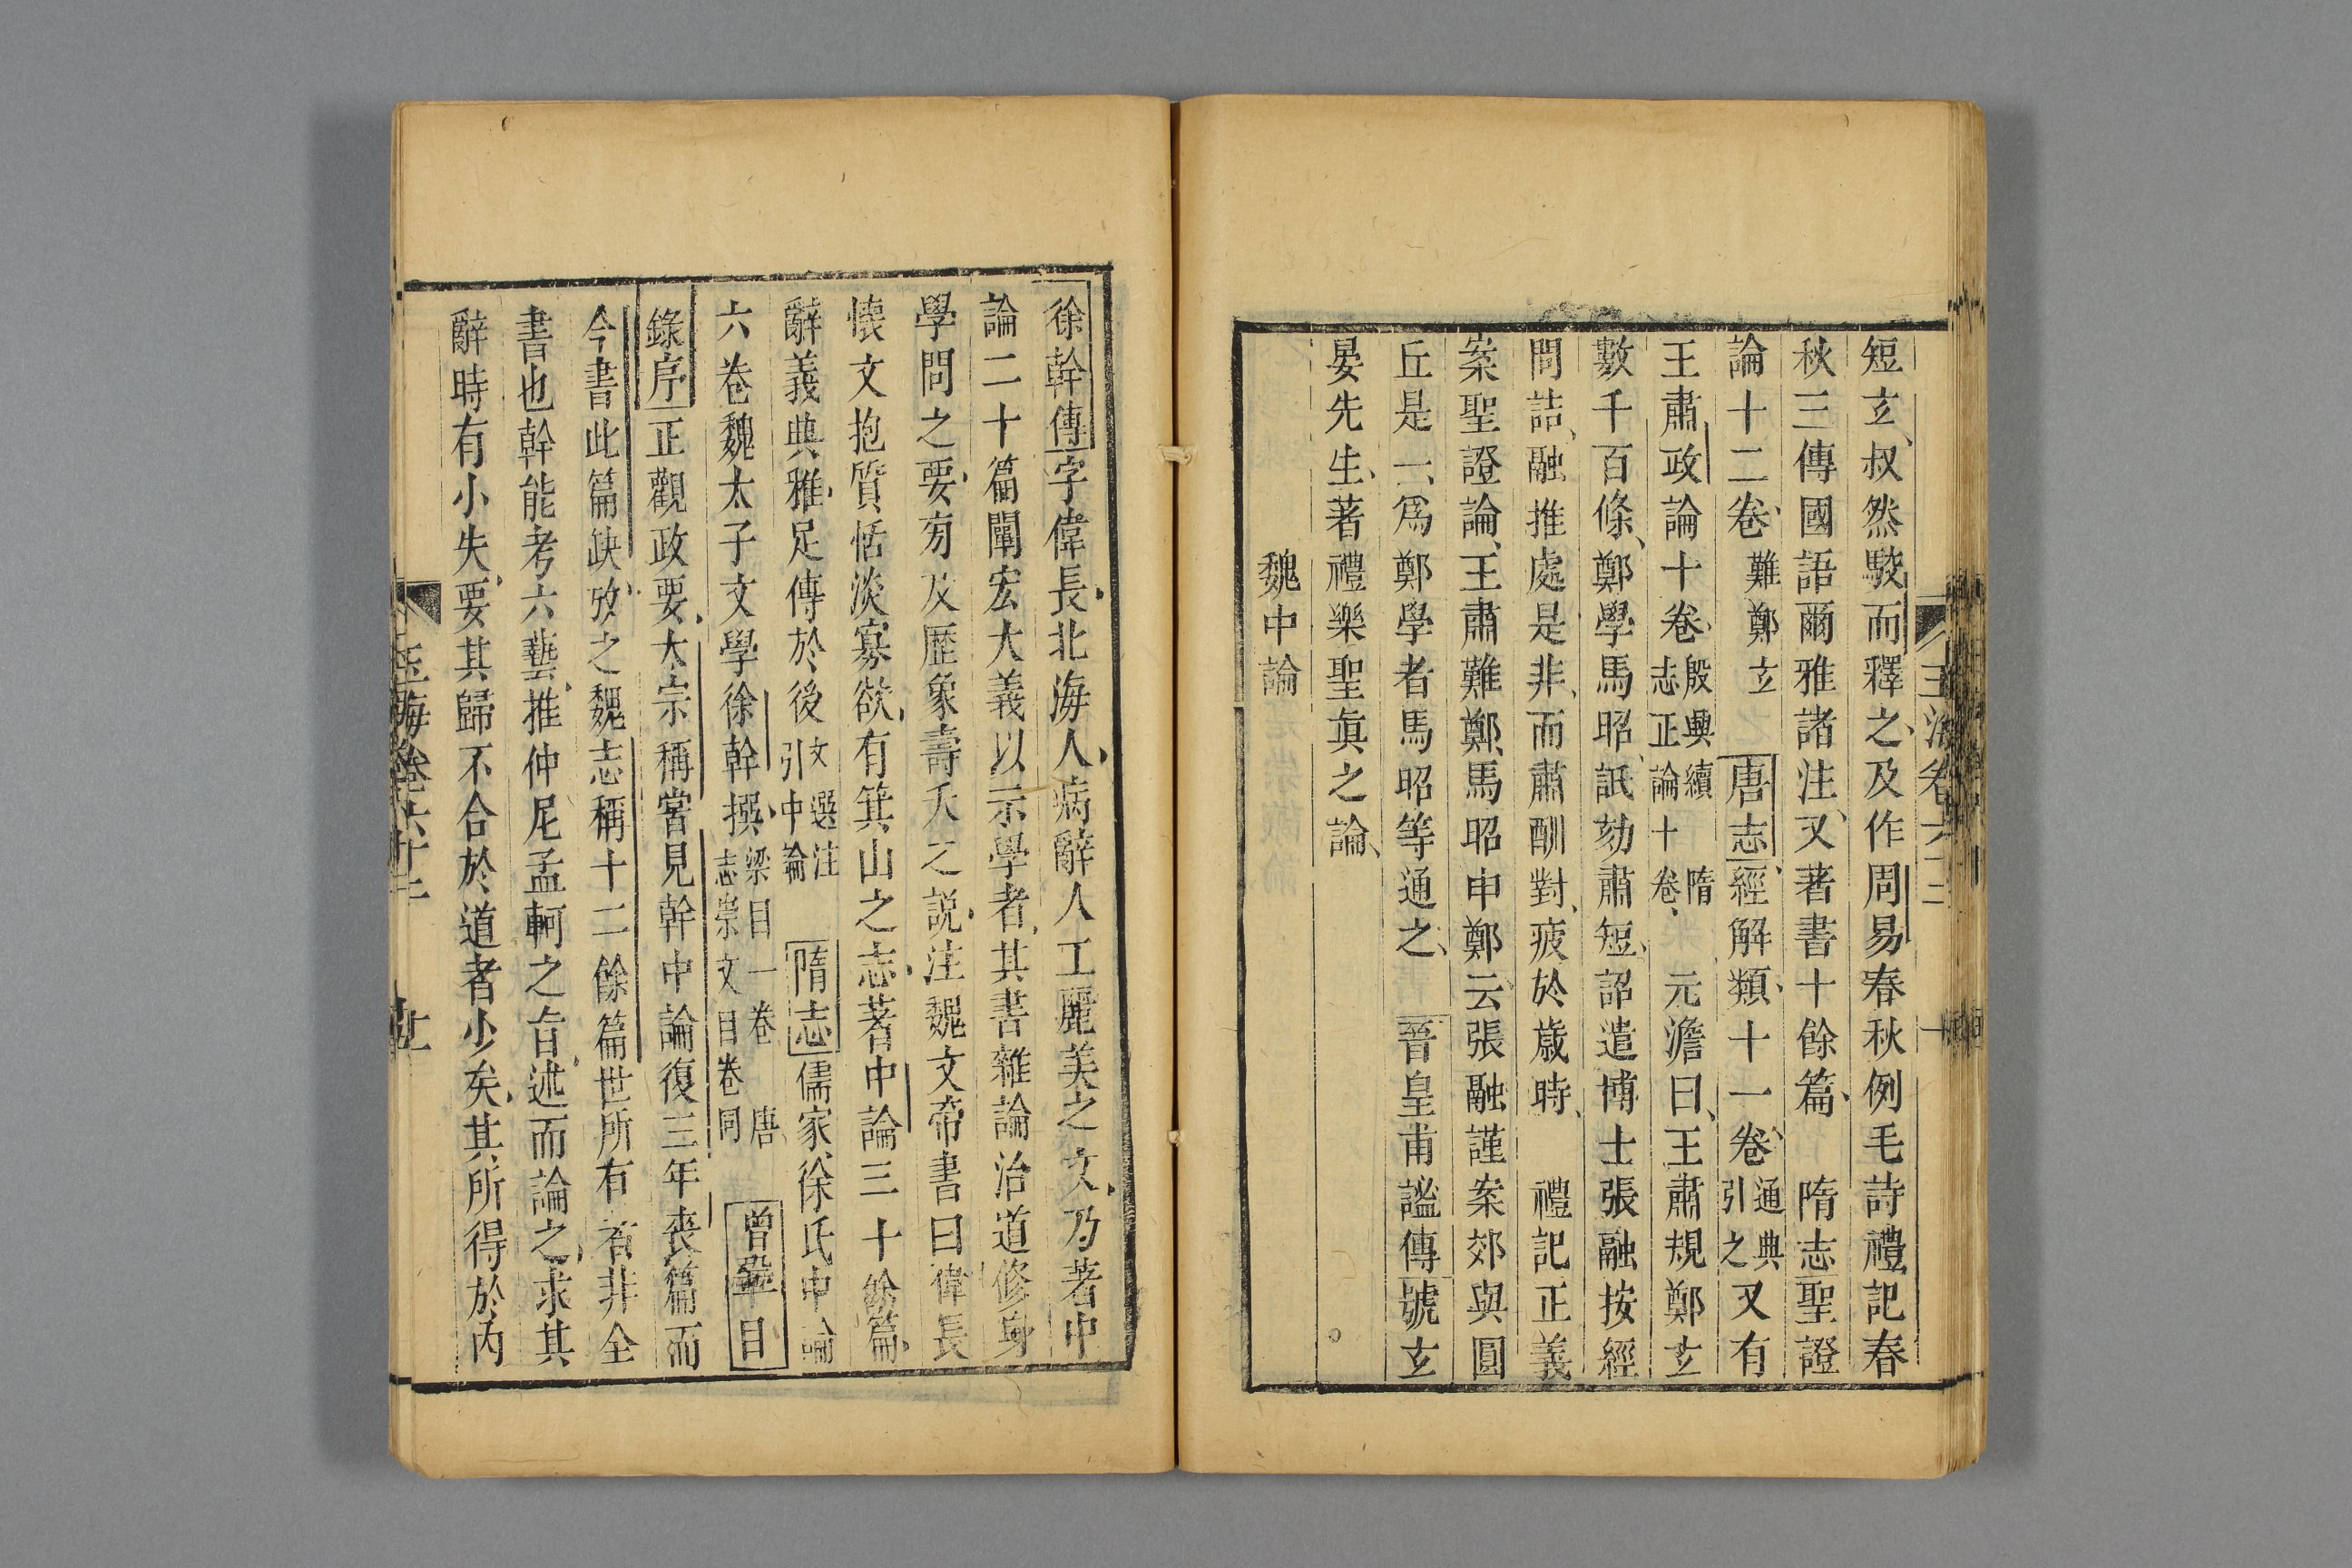 短玄叔然駮而釋之及作周易春秋例毛詩禮記春
秋三傳國語爾雅諸注又著書十餘篇 隋志聖證
論十二卷 難鄭玄 唐志經解類十一卷 通典引之 又有
王肅政論十卷 殷興續隋志正論十卷 元澹曰王肅規鄭玄
數千百條鄭學馬昭詆劾肅短詔遣博士張融按經
問詰融推處是非而肅酬對疲於歲時 禮記正義
案聖證論王肅難鄭馬昭申鄭云張融謹案郊與圓
丘是一爲鄭學者馬昭等通之 晉皇甫謐傳號玄
晏先生著禮樂聖真之論
魏中論
徐幹傳字偉長北海人病辭人工麗美之文乃著中
論二十篇闡宏大義以示學者其書雜論治道修身
學問之要有及歷象壽夭之說注魏文帝書曰偉長
懷文抱質恬淡寡欲有箕山之志著中論三十餘篇
辭義典雅足傳於後 文選注引中論 隋志儒家徐氏中論
六卷魏太子文學徐幹撰 梁目一卷唐志崇文目卷同 曾鞏目
錄序正觀政要太宗稱嘗見幹中論復三年喪篇而
今書此篇缺攷之魏志稱十二餘篇世所有者非全
書也幹能考六藝推仲尼孟軻之旨述而論之求其
辭時有小失要其歸不合於道者少矣其所得於內
玉海卷六十二